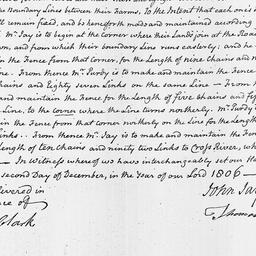 the Boundary Lines between their Farms. To the Intent that each one's
ll remain fixed, and be henceforth made and maintained according
Mr. Jay is to begin at the Corner where their Lands join at the Road
own, and from which their boundary Line runs easterly; and he
in the Fence from that corner, for the Length of nine Chains and n
ne. From thence Mr. Purdy is to make and maintain the Fence
hains and Eighty seven Links on the same Line — From th
and maintain the Fence for the Length of five chains and fif
Line, to the corner where the Line turns northerly. Mr. Purdy
n the Fence from that corner northerly on the Line for the Length
Links. From thence Mr. Jay is to make and maintain the Fen
Length of ten chains and ninety two Links to Cross River, wh
— In Witness whereof we have interchangeably set our Ha
second Day of December, in the Year of our Lord 1806 —
livered in
John Jay
ce of
Thomas
Clark